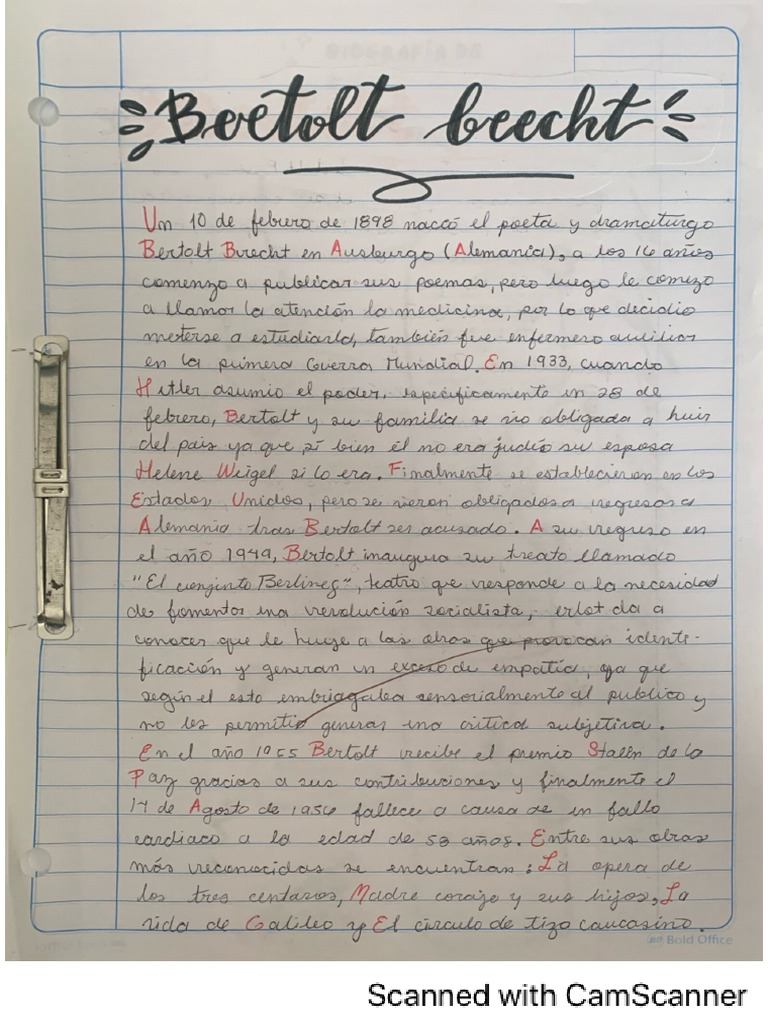 Bertolt brecht
Un 10 de febrero de 1898 nació el poeta y dramaturgo
Bertolt Brecht en Ausburgo (Alemania), a los 16 años
comenzo a publicar sus poemas, pero luego le comezo
a llamar la atención la medicina, por lo que decidio
meterse a estudiarla, también fue enfermero auxiliar
en la primera Guerra Mundial. En 1933, cuando
Hitler asumio el poder, especificamente un 28 de
febrero, Bertolt y su familia se vio obligada a huir
del pais ya que si bien él no era judío su esposa
Helene Weigel si lo era. Finalmente se establecieron en los
Estados Unidos, pero se vieron obligados a regresar a
Alemania tras Bertolt ser acusado. A su regreso en
el año 1949, Bertolt inaugura su treato llamado
"El conjinto Berlines", teatro que responde a la necesidad
de fomentar una revolución socialista, da a
conocer que le huye a las obras que provocan identi-
ficación y generan un exceso de empatía, ya que
según el esto embriagaba sensorialmente al publico y
no les permitia generar una critica subjetiva.
En el año 1955 Bertolt recibe el premio Stalin de la
Paz gracias a sus contribuciones y finalmente el
14 de Agosto de 1956 fallece a causa de un fallo
cardiaco a la edad de 58 años. Entre sus obras
más reconocidas se encuentran: La opera de
los tres centavos, Madre coraje y sus hijos, La
vida de Galileo y El circulo de tiza caucasino.
Bold Office
Scanned with CamScanner